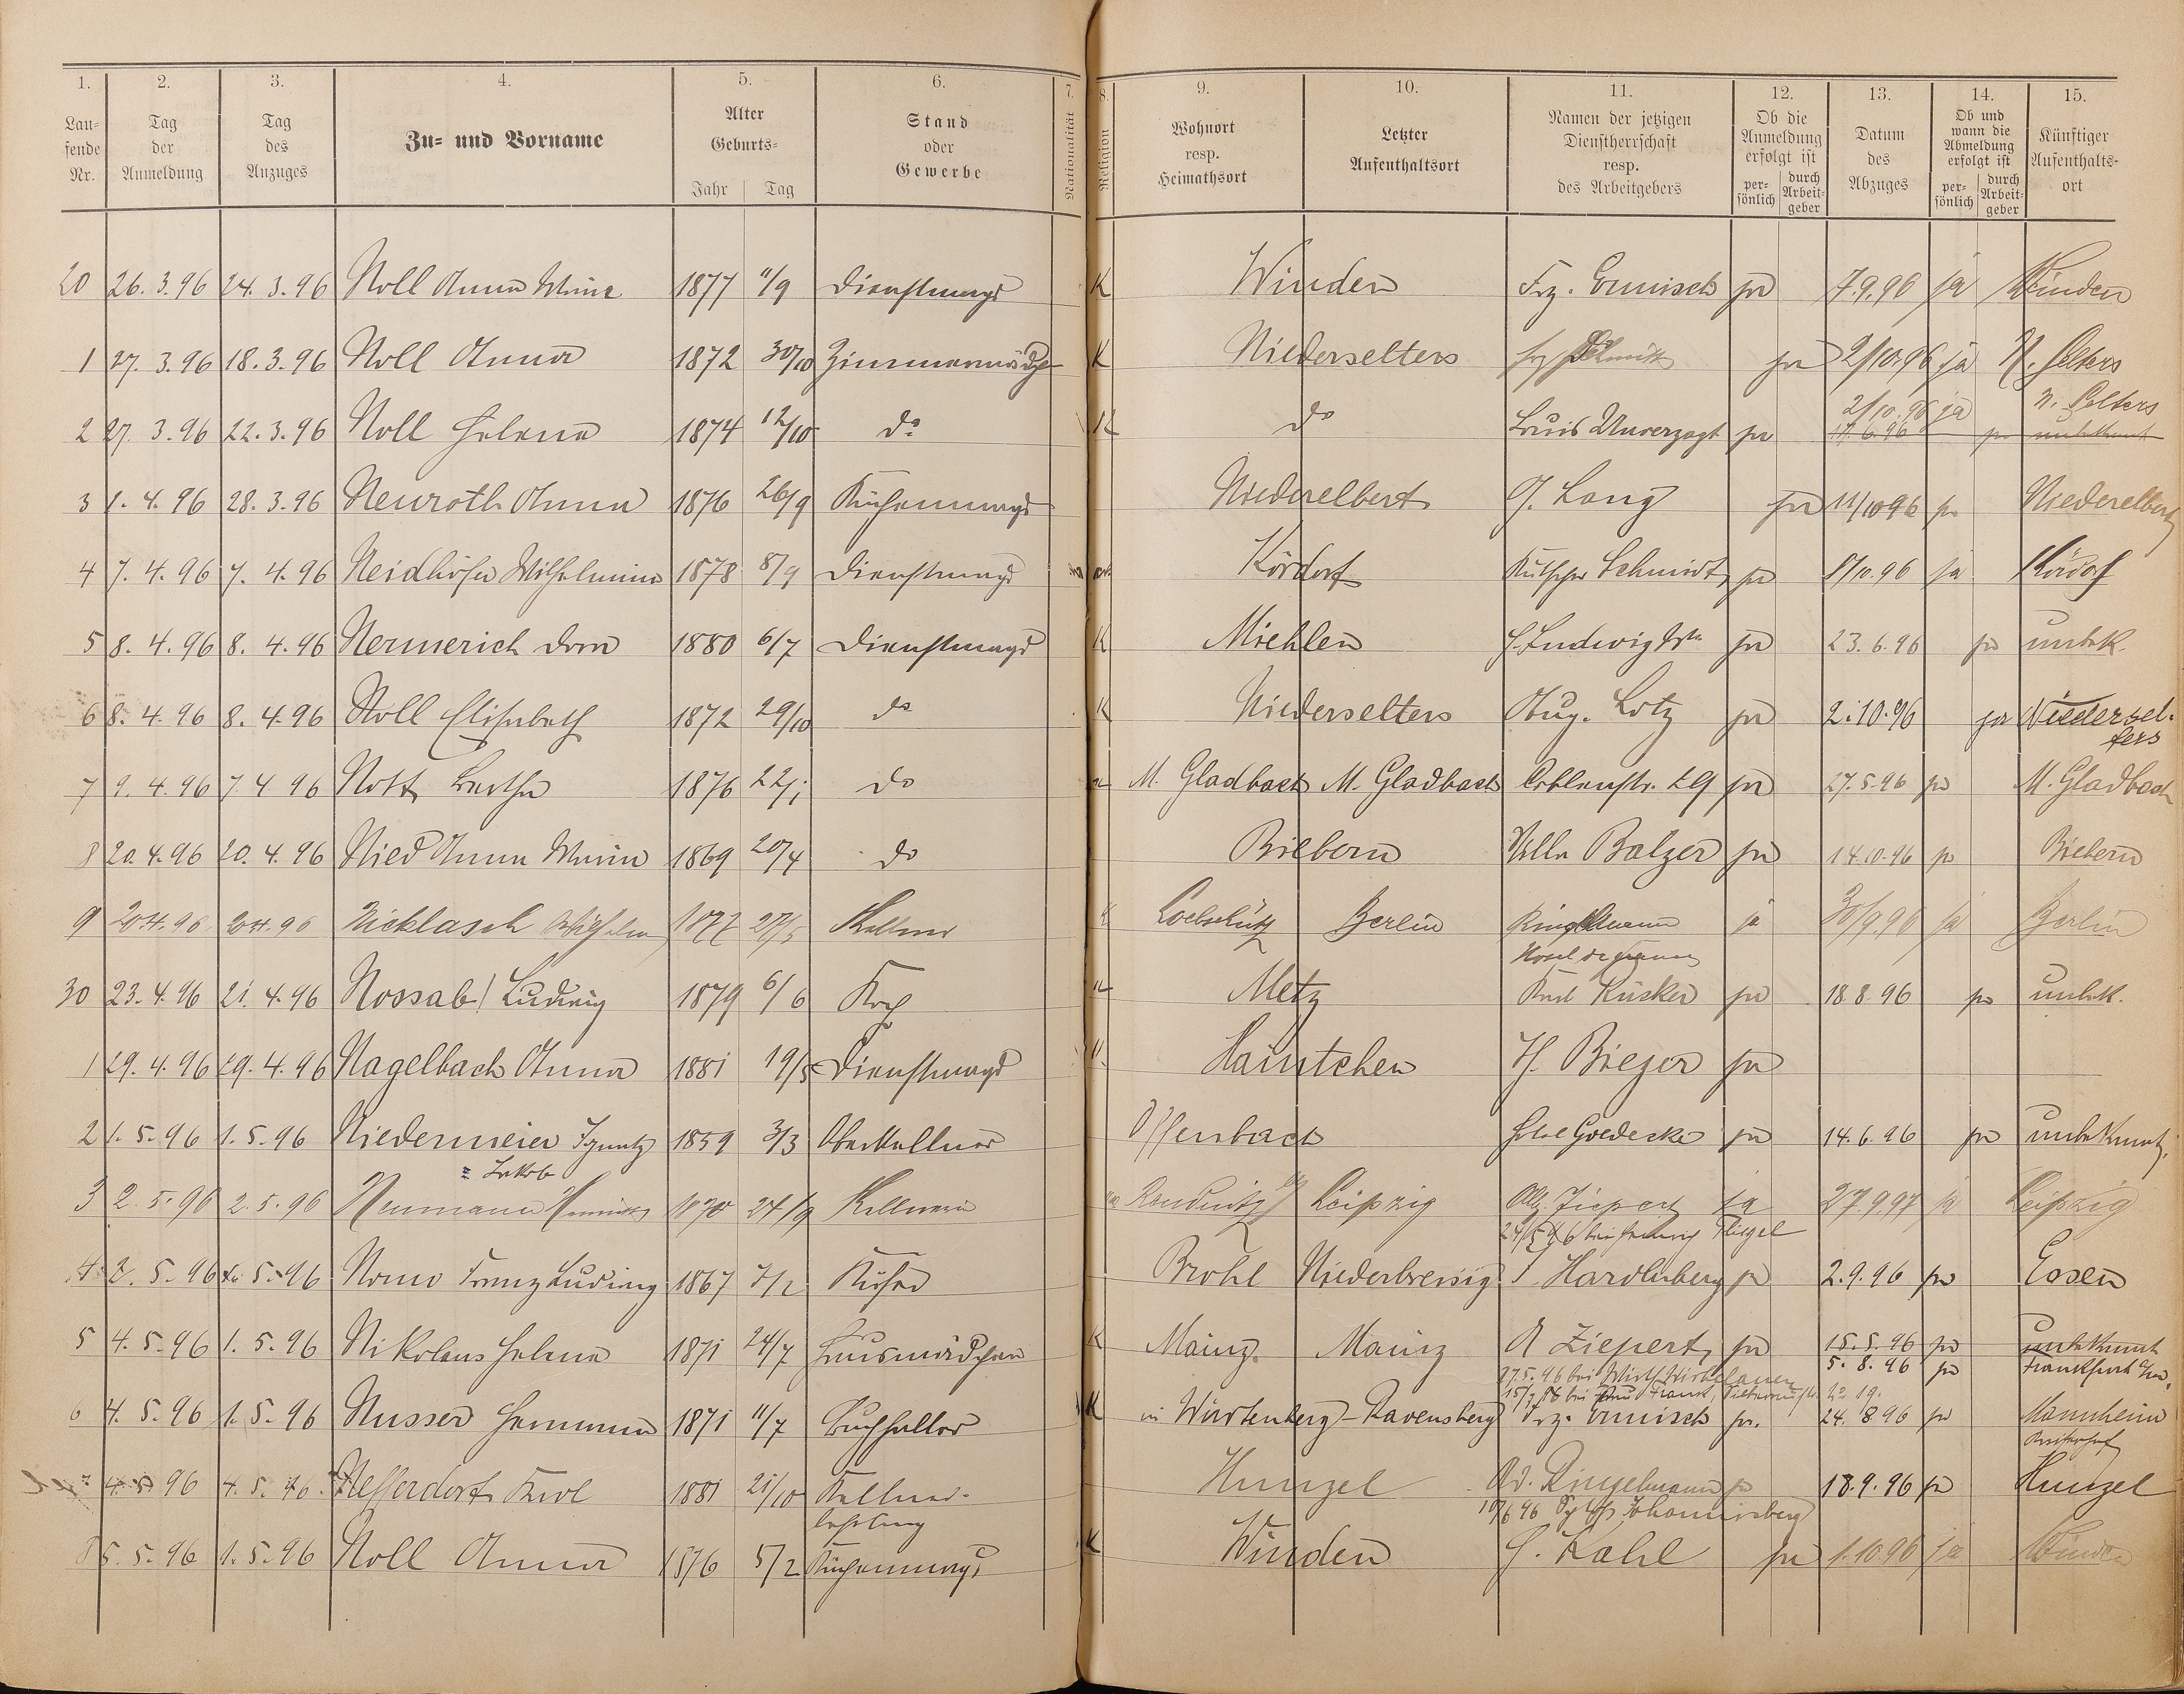 1. 2. 3. 4. 5. 6. 7. 8. 9. 10. 11. 12. 13. 14. 15.
Laufende Nr. | Tag der Anmeldung | Tag des Anzuges | Zu- und Vorname | Alter Geburts- Jahr Tag | Stand oder Gewerbe | Nationalität | Religion | Wohnort resp. Heimathsort | Letzter Aufenthaltsort | Namen der jetzigen Dienstherrschaft resp. des Arbeitgebers | Ob die Anmeldung erfolgt ist persönlich durch Arbeitgeber | Datum des Abzuges | Ob und wann die Abmeldung erfolgt ist persönlich durch Arbeitgeber | Künftiger Aufenthaltsort
20 26. 3. 96 24. 3. 96 Noll Anna Maria 1877 11/9 Dienstmagd K Winden Frz. Ermisch ja 7.9.96 ja Winden
1 27. 3. 96 18. 3. 96 Noll Anna 1872 30/10 Zimmermädchen K Niederselters Schmitt ja 2/10.96 ja N. Selters
2/10.96 ja N. Selters
2 27. 3. 96 22. 3. 96 Noll Helena 1874 12/10 do K do Louis Unverzagt ja 17. 6. 96 ja unbekannt
3 1. 4. 96 28. 3. 96 Neuroth Anna 1876 26/9 Küchenmagd Niederelbert J. Lang ja 11/10 96 ja Niederelbert
4 7. 4. 96 7. 4. 96 Neidhöfer Wilhelmine 1878 8/9 Dienstmagd Kördorf Kutscher Schmidt ja 8/10.96 ja Kördorf
5 8. 4. 96 8. 4. 96 Nermerich Dora 1880 6/7 Dienstmagd K Miehlen H. Ludwig ja 23. 6. 96 ja unbek.
6 8. 4. 96 8. 4. 96 Noll Elisabeth 1872 29/10 do K Niederselters Aug. Lotz ja 2.10.96 ja Niedersel-
ters
7 9. 4. 96 7. 4. 96 Nott Bertha 1876 22/1 do M. Gladbach M. Gladbach Coblenzstr. 29 ja 27. 5. 96 ja M. Gladbach
8 20. 4. 96 20. 4. 96 Nied Anna Maria 1869 20/4 do Biebern Villa Balzer ja 14.10.96 ja Biebern
9 20.4.96 20.4.96 Nicklasch Wilhelm 1877 27/5 Kellner K Loebschütz Berlin Ringelmann ja 30/9.96 ja Berlin
30 23. 4. 96 21. 4. 96 Nossab Ludwig 1879 6/6 Koch K Metz Karl Rücker ja 18. 8. 96 ja unbek.
1 29. 4. 96 29. 4. 96 Nagelbach Anna 1881 19/5 Dienstmagd Haintchen H. Bieger ja
2 1. 5. 96 1. 5. 96 Niedermeier Ignatz 1859 3/3 Oberkellner Offenbach Hotel Goedecke ja 14. 6. 96 ja unbekannt.
= Jakob
3 2. 5. 96 2. 5. 96 Neumann 1870 24/9 Leipzig Alb. Ziepert ja 27.9.97 ja Leipzig
24/5 96 bei Flügel
4 2. 5. 96 5. 96 Franz Ludwig 1867 7/2 Küfer Brohl Niederbreisig J. Hardenberg ja 2. 9. 96 ja Essen
5 4. 5. 96 1. 5. 96 Nikolaus Helena 1871 24/7 Hausmädchen K Mainz Mainz A Ziepert ja 15. 5. 96 ja unbekannt
27.5.96 bei 5. 8. 96 ja Frankfurt a/m.
15/7 96 bei No 19.
6 4. 5. 96 1. 5. 96 Nusser Hermann 1871 11/7 Buchhalter K in Würtenberg - Ravensberg Frz. Ermisch ja. 24. 8 96 ja Mannheim
4. 5. 96 4. 5. 96 Nefferdorf Karl 1881 21/10 Kellner- Hunzel Ad. Ringelmann ja 18. 9. 96 ja Hunzel
lehrling 10/6 96 Johannisberg
8 5. 5. 96 1. 5. 96 Noll Anna 1876 5/2 Küchenmagd K Winden H. Kahl ja 1.10.96 ja Winden